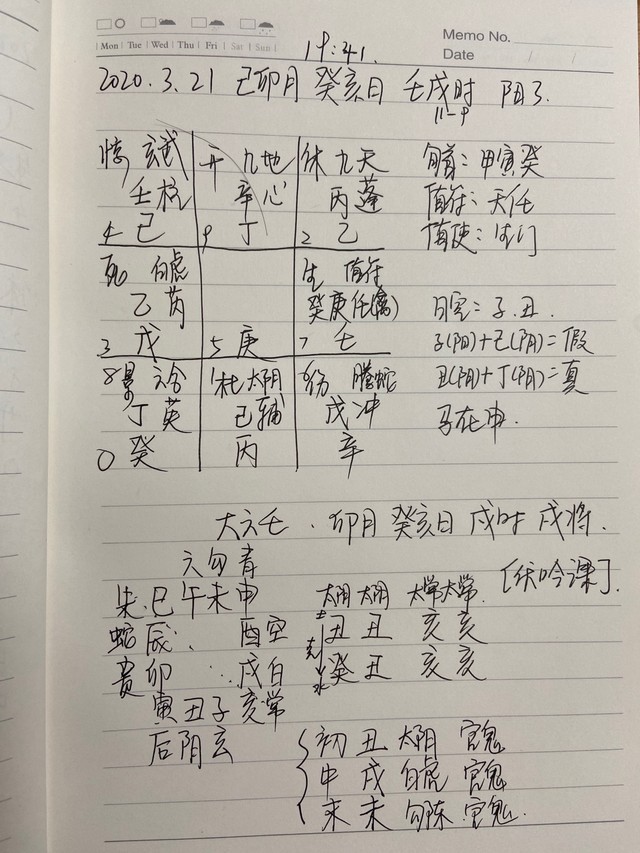 Memo No.
Mon Tue Wed Thu Fri Sat Sun
Date / /
19:41.
2020.3.21 己卯月 癸亥日 壬戌时 阳3.
11-9
惊 玄武 开 九地 休 九天 旬首:甲寅癸
壬柱 辛心 丙蓬 值符:天任
4 己 9 丁 2 乙 值使:生门
死 白虎 生 值符
乙芮 癸庚任(禽) 日空=子.丑.
3 戊 5 庚 7 壬 子(阳)+己(阴)=假
8景 六合 1杜太阴 6伤 腾蛇 丑(阴)+丁(阴)=真
丁英 己辅 戊冲 马在申.
0 癸 丙 辛
大六壬. 卯月 癸亥日 戌时 戌将.
六勾青 [伏吟课].
朱.巳午未申 太阴太阴 太常太常
蛇 辰. 酉空 土 丑 丑 亥 亥
贵 卯 戌白 克 癸 丑 亥 亥
寅丑子亥常 水
后阴玄
初 丑 太阴 官鬼
中 戌 白虎 官鬼
末 未 勾陈 官鬼.